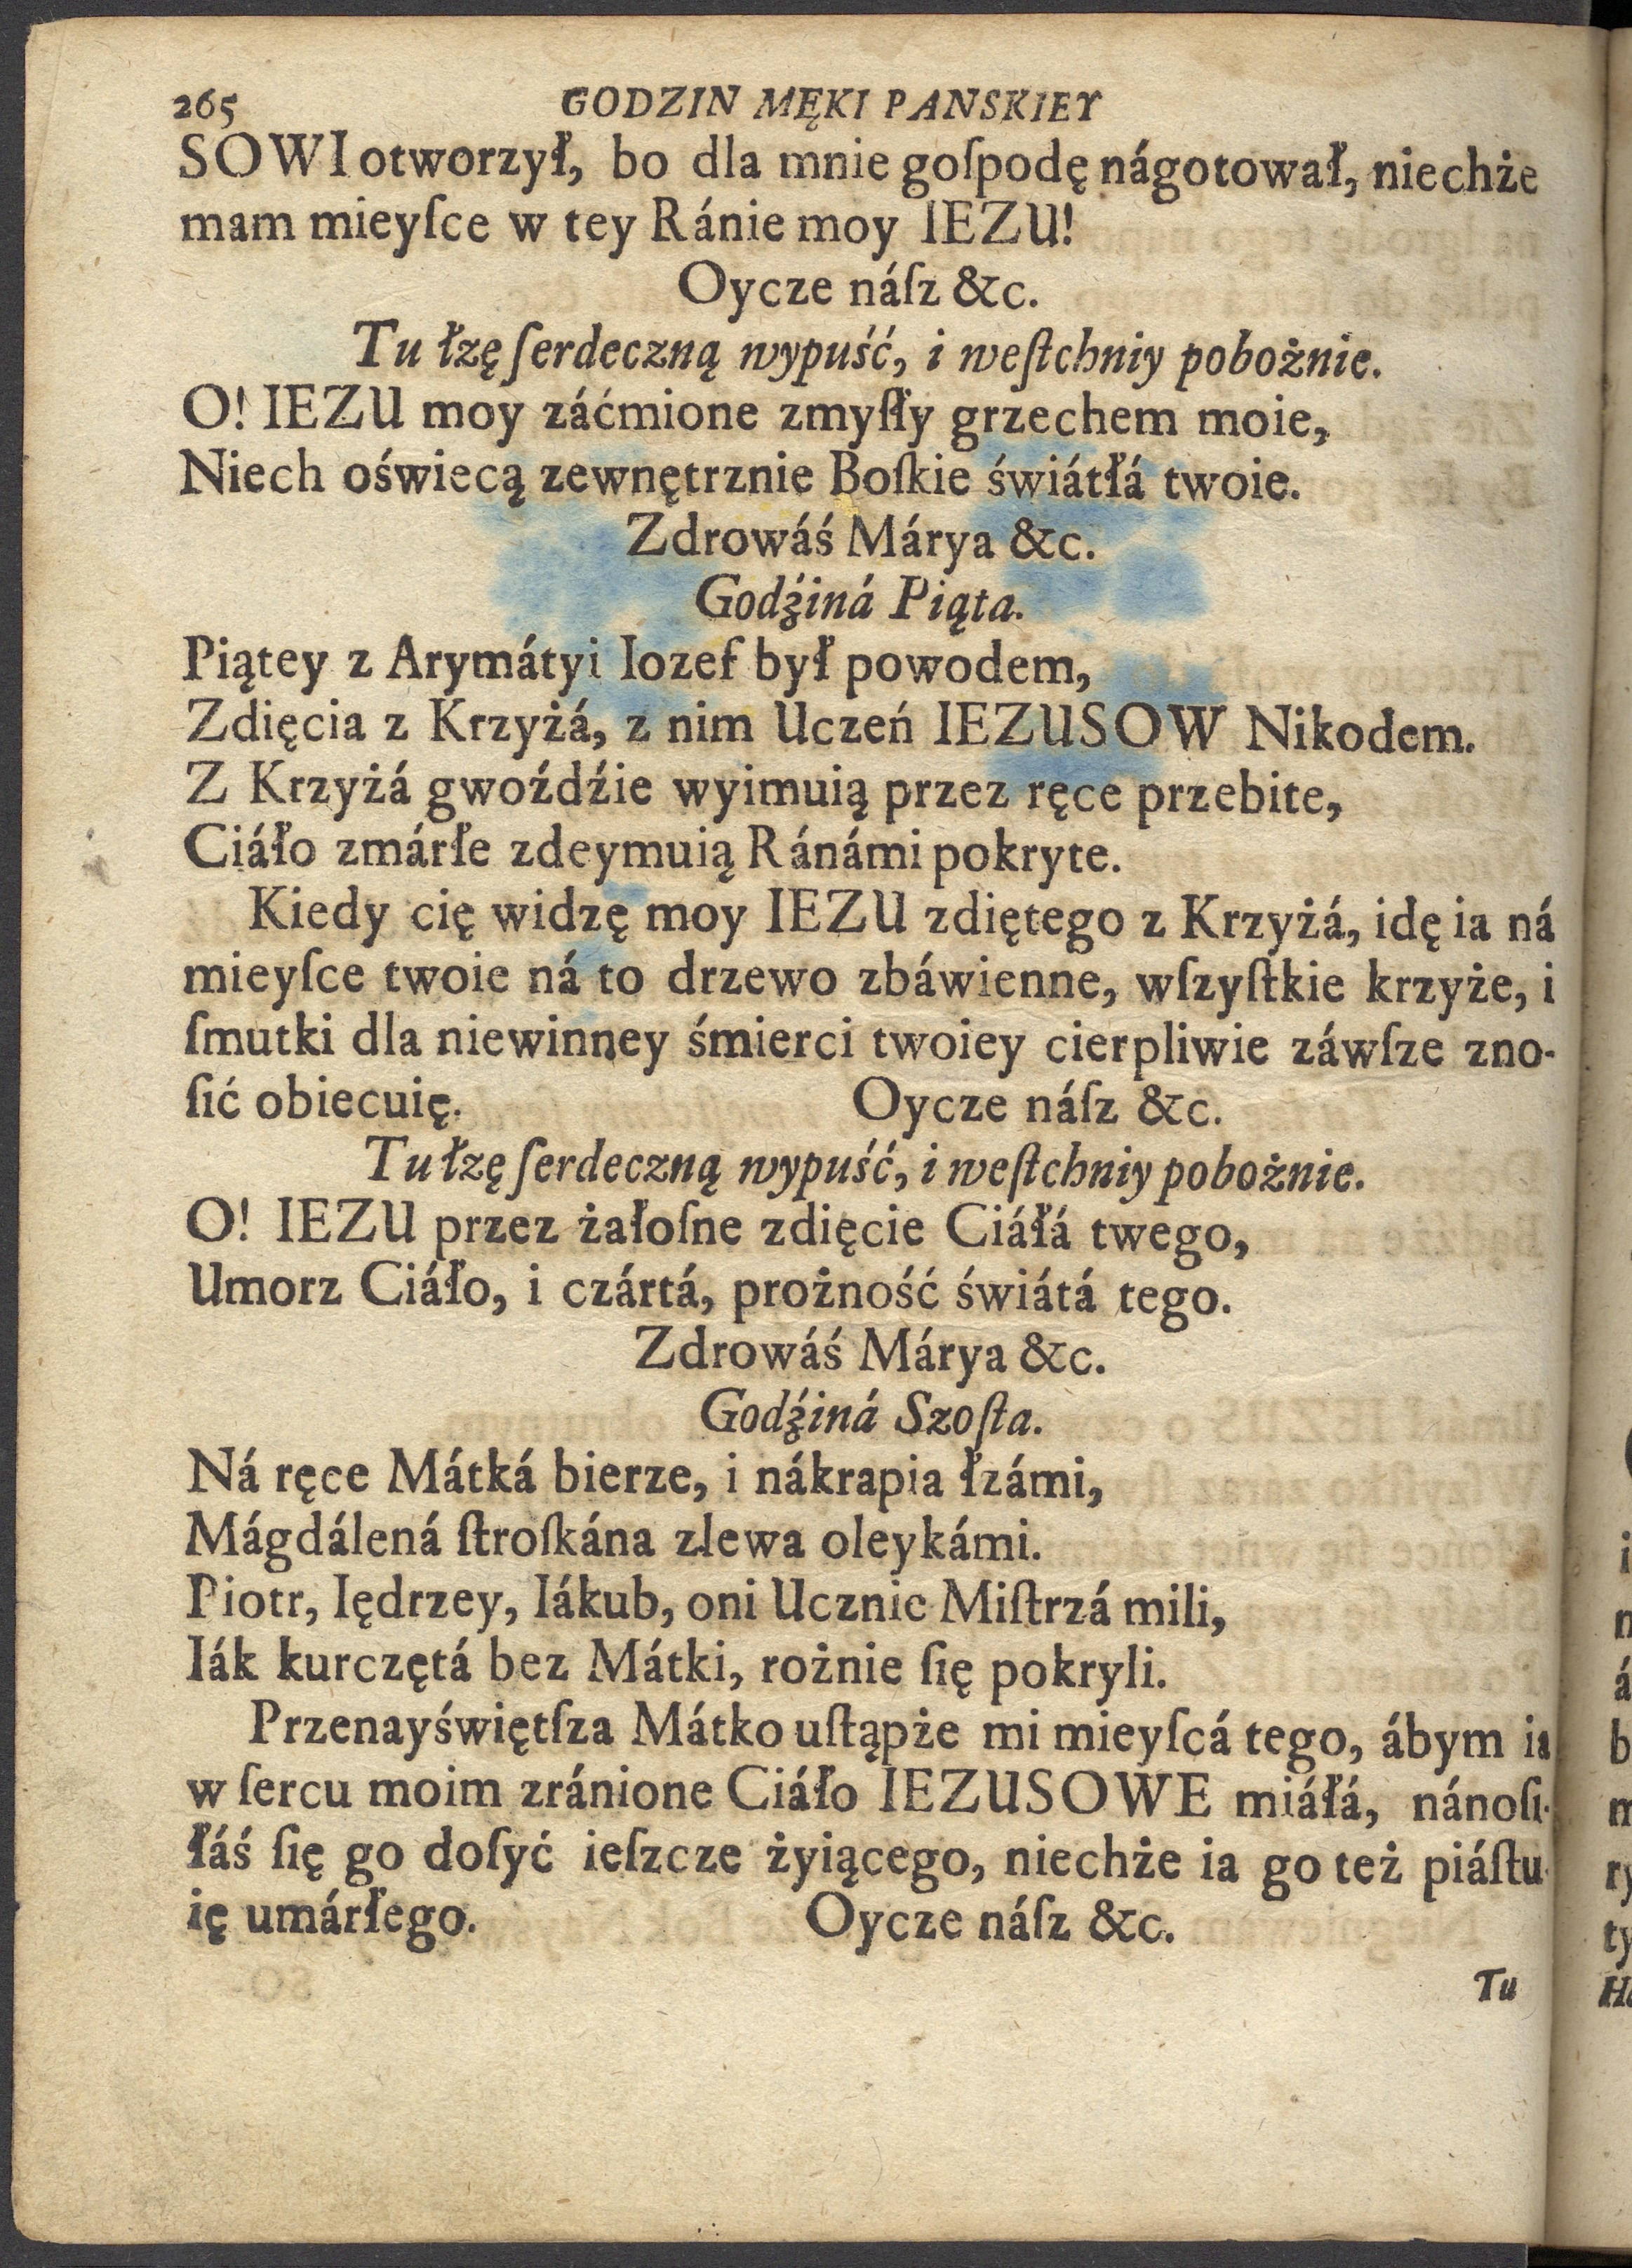 265 GODZIN MĘKI PANSKIEY
SOWI otworzył, bo dla mnie goſpodę nágotował, niechże
mam mieyſce w tey Ránie moy IEZU!
Oycze náſz &c.
Tu łzę ſerdeczną wypuść, i weſtchniy pobożnie.
O! IEZU moy záćmione zmyſły grzechem moie,
Niech oświecą zewnętrznie Boſkie świátłá twoie.
Zdrowáś Márya &c.
Godźiná Piąta.
Piątey z Arymátyi Iozef był powodem,
Zdięcia z Krzyżá, z nim Uczeń IEZUSOW Nikodem.
Z Krzyżá gwoźdźie wyimuią przez ręce przebite,
Ciáło zmárłe zdeymuią Ránámi pokryte.
Kiedy cię widzę moy IEZU zdiętego z Krzyżá, idę ia ná
mieyſce twoie ná to drzewo zbáwienne, wſzyſtkie krzyże, i
ſmutki dla niewinney śmierci twoiey cierpliwie záwſze zno-
ſić obiecuię. Oycze náſz &c.
Tu łzę ſerdeczną wypuść, i weſtchniy pobożnie.
O! IEZU przez żałoſne zdięcie Ciáłá twego,
Umorz Ciáło, i czártá, prożność świátá tego.
Zdrowáś Márya &c.
Godźiná Szoſta.
Ná ręce Mátká bierze, i nákrapia łzámi,
Mágdálená ſtroſkána zlewa oleykámi.
Piotr, Iędrzey, Iákub, oni Ucznie Miſtrzá mili,
Iák kurczętá bez Mátki, rożnie ſię pokryli.
Przenayświętſza Mátko uſtąpże mi mieyſcá tego, ábym ia
w ſercu moim zránione Ciáło IEZUSOWE miáłá, nánoſi-
łáś ſię go doſyć ieſzcze żyiącego, niechże ia go też piáſtu-
ię umárłego. Oycze náſz &c.
Tu